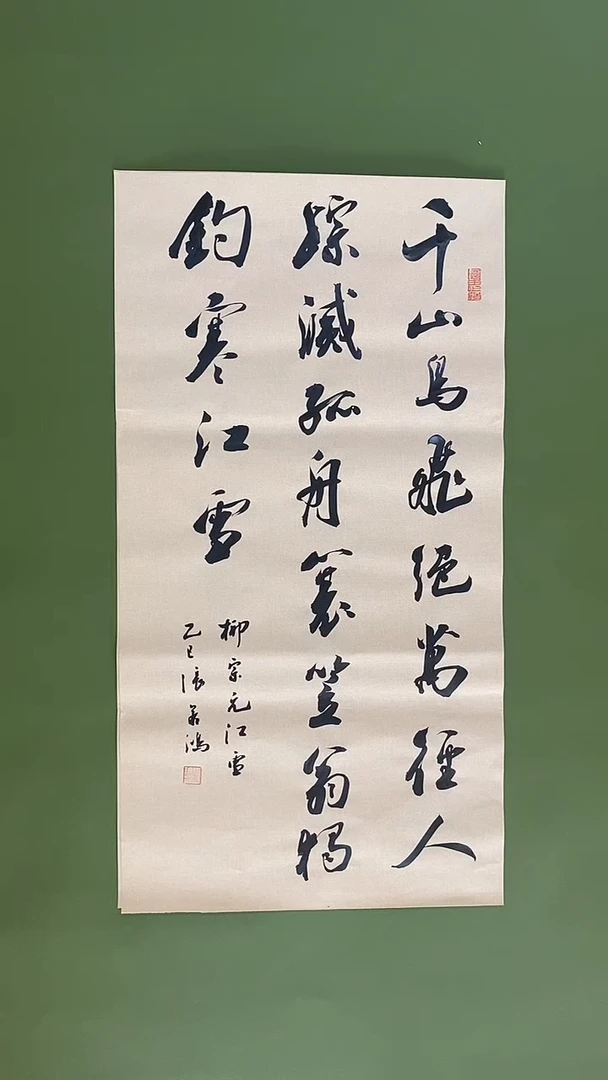 千山鳥飛絕萬徑人
踪滅孤舟蓑笠翁獨
釣寒江雪
柳宗元江雪
乙巳張若鴻